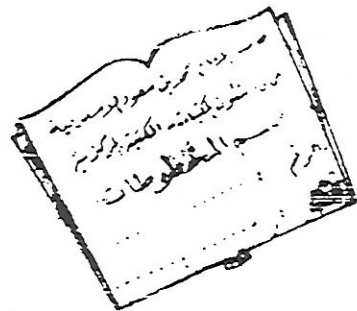 جامعة الإمام محمد بن سعود الإسلامية
عمادة شئون المكتبات المكتبة المركزية
قسم المخطوطات
الرقم :